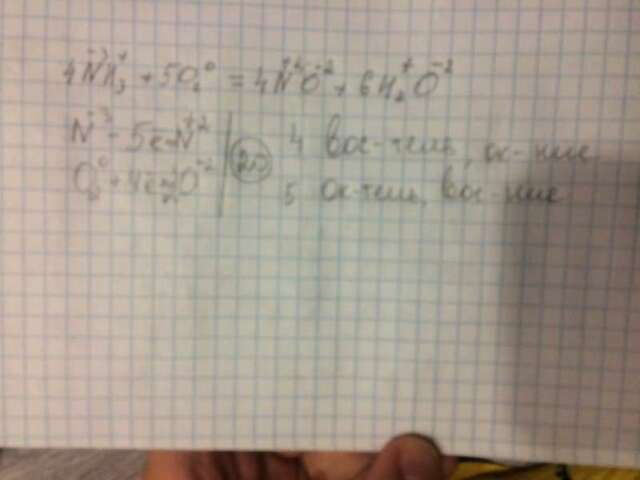 4N⁻³H₃⁺ + 5O₂⁰ = 4N⁺²O⁻² + 6H₂⁺O⁻²
N⁻³ - 5e → N⁺² | 20 4 вос-тель, ок-ние
O₂⁰ + 4e → 2O⁻² | 5 ок-тель, вос-ние